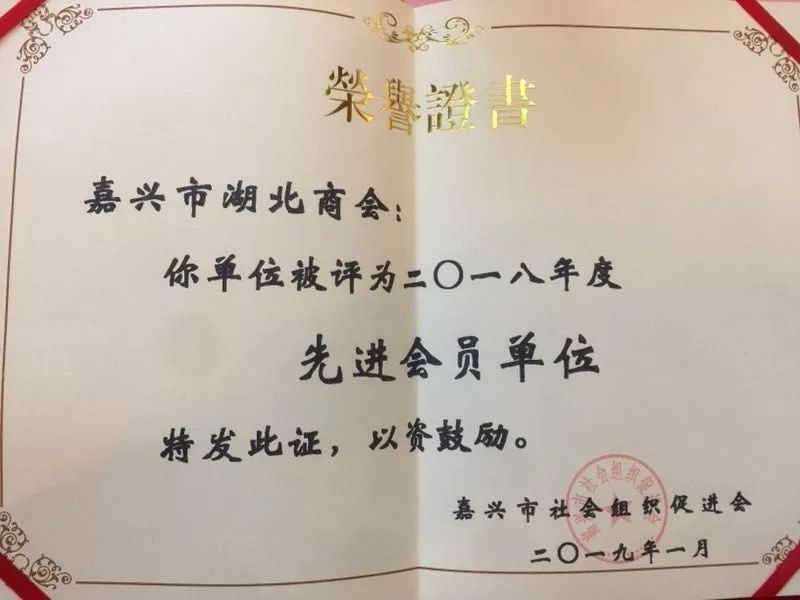 榮譽證書
嘉兴市湖北商会：
你单位被评为二〇一八年度
先进会员单位
特发此证，以资鼓励。
嘉兴市社会组织促进会
嘉兴市社会组织促进会
二〇一九年一月